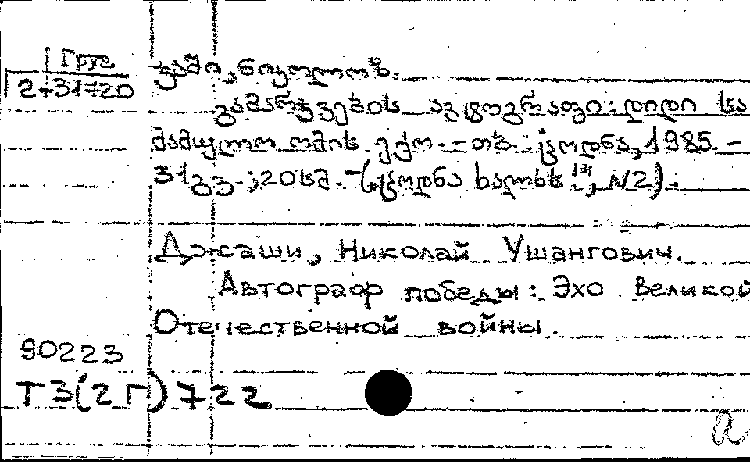 Груз
2+31+720
ჯაში, ნიკოლოზ.
გამარჯვების ავტოგრაფი: დიდი სა
მამულო ომის ექო. – თბ.: ცოდნა, 1985. –
31გვ.; 20სმ. – (ცოდნა ხალხს", N2).
Джаши, Николай Ушангович.
Автограф победы: Эхо Великой
Отечественной войны.
90223
Т3(2Г)722